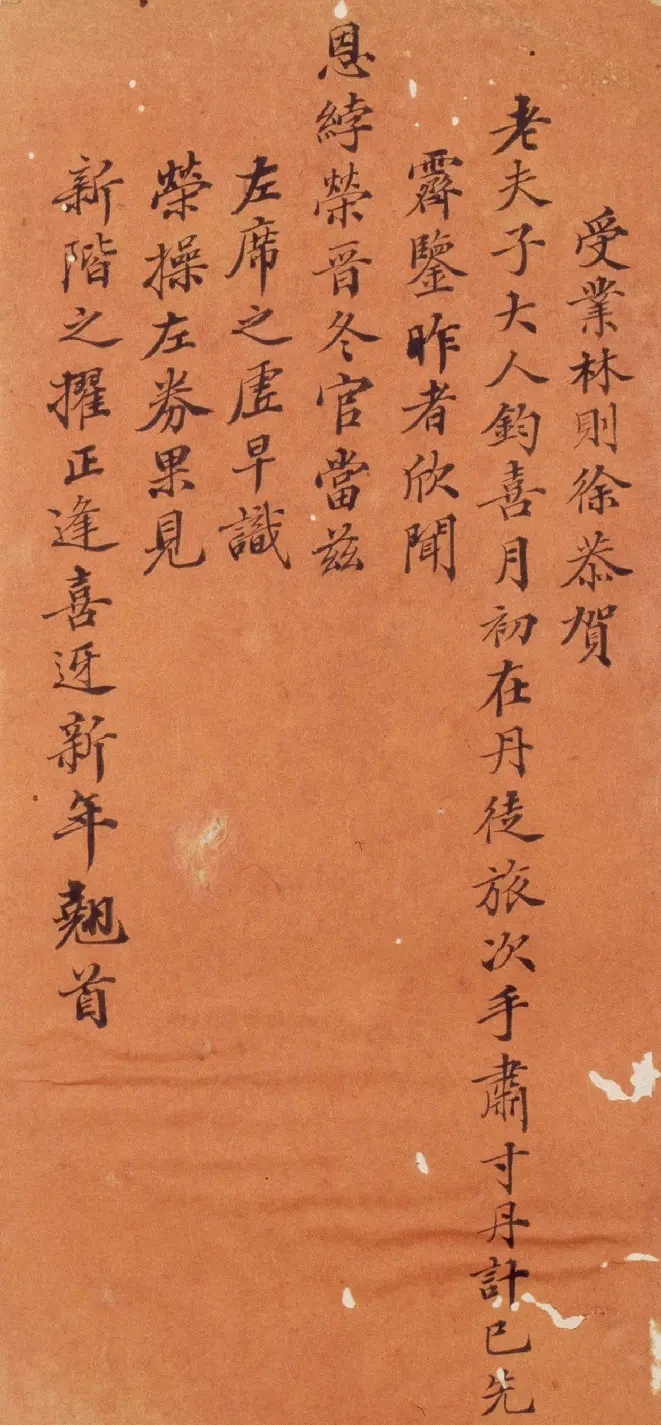 受業林則徐恭賀
老夫子大人鈞喜月初在丹徒旅次手肅寸丹計已先
霽鑒昨者欣聞
恩綍榮晉冬官當茲
左席之虛早識
榮操左券果見
新階之擢正逢喜迓新年翹首